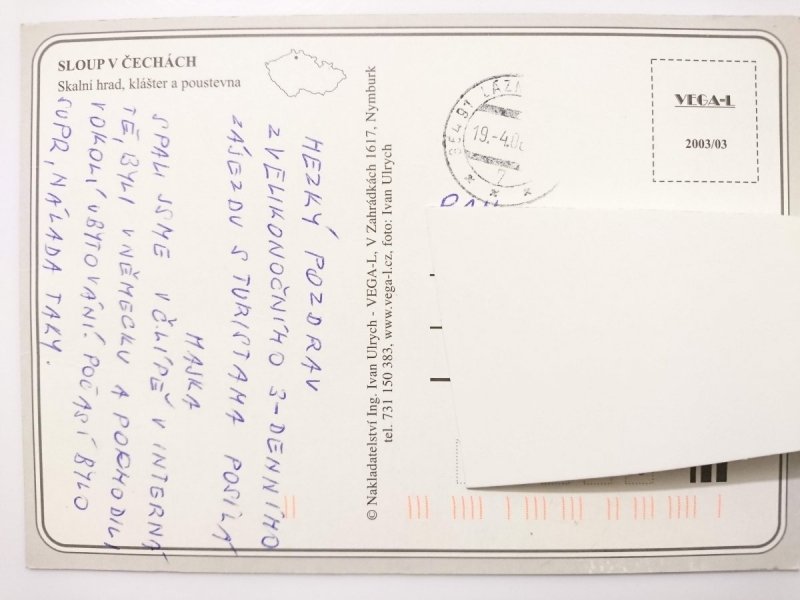 SLOUP V ČECHÁCH
Skalní hrad, klášter a poustevna
HEZKÝ POZDRAV
Z VELIKONOČNÍHO 3-DENNÍHO
ZÁJEZDU S TURISTAMA POSÍLÁ
MAJKA
SPALI JSME V Č. LÍPĚ V INTERNÁ
TĚ, BYLI V NĚMECKU A POCHODILI
V OKOLÍ UBYTOVÁNÍ. POČASÍ BYLO
SUPR, NÁLADA TAKY.
© Nakladatelství Ing. Ivan Ulrych - VEGA-L, V Zahrádkách 1617, Nymburk
tel. 731 150 383, www.vega-l.cz, foto: Ivan Ulrych
LÁZN
19.-4.0
7
VEGA-L
2003/03